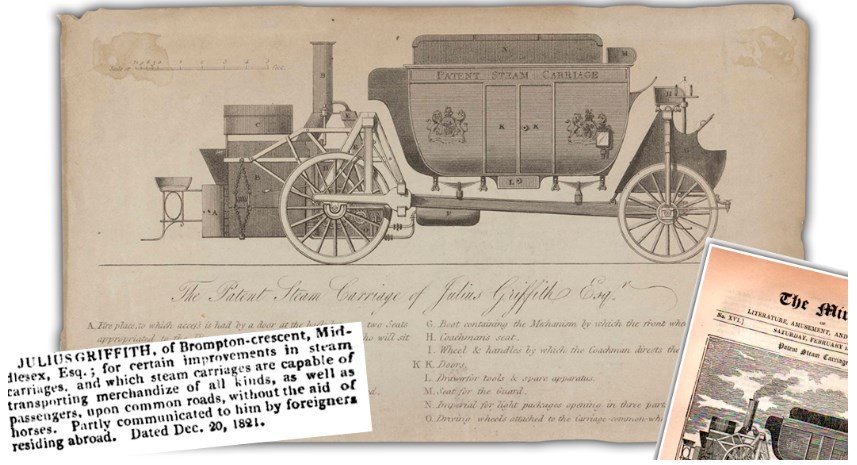 PATENT STEAM CARRIAGE
The Patent Steam Carriage of Julius Griffith Esq.r
A. Fire place, to which access is had by a door at the
two Seats
will sit
G. Boot containing the Mechanism by which the front
H. Coachmans seat.
I. Wheel & handles by which the Coachman directs the
K K. Doors,
L. Drawer for tools & spare apparatus.
M. Seat for the Guard.
N. Imperial for light packages opening in three
O. Driving wheels attached to the Carriage
JULIUS GRIFFITH, of Brompton-crescent, Mid-
dlesex, Esq.; for certain improvements in steam
carriages, and which steam carriages are capable of
transporting merchandize of all kinds, as well as
passengers, upon common roads, without the aid of
horses. Partly communicated to him by foreigners
residing abroad. Dated Dec. 20, 1821.
The Mir
OF
LITERATURE, AMUSEMENT, AND
No. XVI.]
SATURDAY, FEBRUARY
Patent Steam Carriage